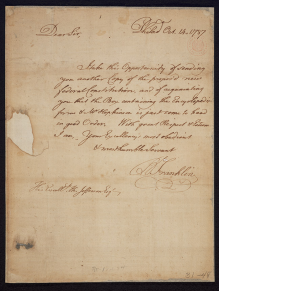 Dear Sir, Philad.ª Oct. 14, 1787
I take this Opportunity of sending
you another Copy of the propos'd new
federal Constitution, and of
you that the Box containing the Encyclopedia
for & Mr Hopkinson is just come to hand
in good Order. With great Respect &
I am, Your Excellency's most obedient
& most humble Servant
B. Franklin
His Excell.y Tho Jefferson Esq.